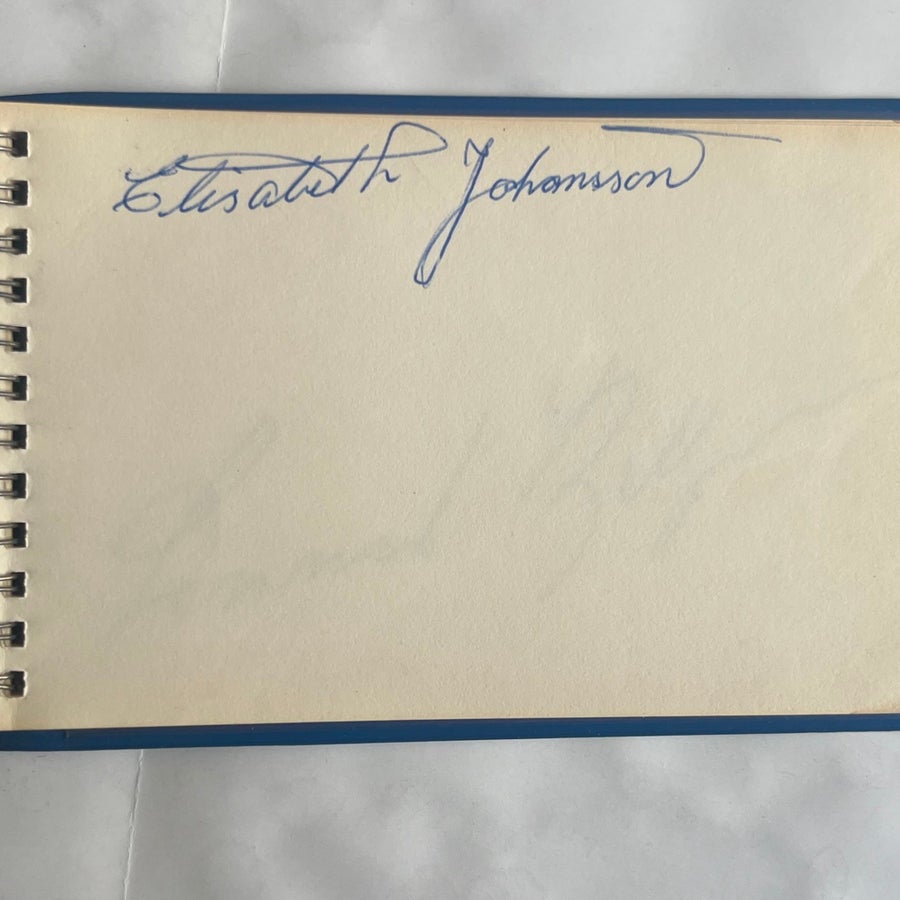 Elisabeth Johansson